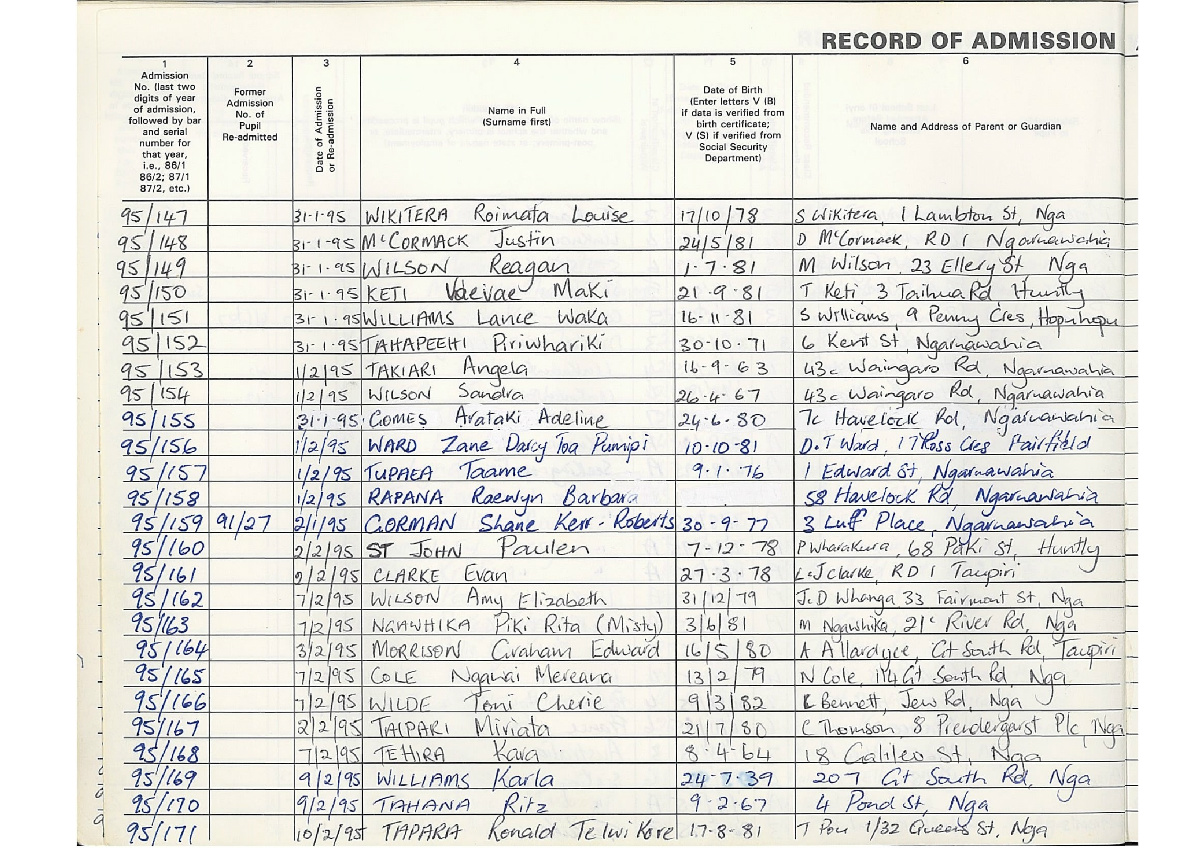 RECORD OF ADMISSION
1 2 3 4 5 6
Admission No. (last two digits of year of admission, followed by bar and serial number for that year, i.e., 86/1 86/2; 87/1 87/2, etc.)
Former Admission No. of Pupil Re-admitted
Date of Admission or Re-admission
Name in Full (Surname first)
Date of Birth (Enter letters V (B) if data is verified from birth certificate; V (S) if verified from Social Security Department)
Name and Address of Parent or Guardian
95/147 31-1-95 WIKITERA Roimata Louise 17/10/78 S Wikitera, 1 Lambton St, Nga
95/148 31-1-95 McCORMACK Justin 24/5/81 D McCormack, RD 1 Ngaruawahia
95/149 31-1-95 WILSON Reagan 1-7-81 M Wilson, 23 Ellery St Nga
95/150 31-1-95 KETI Vaevae Maki 21-9-81 T Keti, 3 Taihua Rd, Huntly
95/151 31-1-95 WILLIAMS Lance Waka 16-11-81 S Williams, 9 Penny Cres, Hopuhopu
95/152 31-1-95 TAHAPEEHI Piriwhariki 30-10-71 6 Kent St, Ngaruawahia
95/153 1/2/95 TAKIARI Angela 16-9-63 43c Waingaro Rd, Ngaruawahia
95/154 1/2/95 WILSON Sandra 26-4-67 43c Waingaro Rd, Ngaruawahia
95/155 31-1-95 GOMES Arataki Adeline 24-6-80 7c Havelock Rd, Ngaruawahia
95/156 1/2/95 WARD Zane Darcy Toa Pumipi 10-10-81 D.T Ward, 17 Ross Cres Fairfield
95/157 1/2/95 TUPAEA Taame 9-1-76 1 Edward St, Ngaruawahia
95/158 1/2/95 RAPANA Raewyn Barbara 58 Havelock Rd, Ngaruawahia
95/159 91/27 2/1/95 GORMAN Shane Kerr-Roberts 30-9-77 3 Luff Place, Ngaruawahia
95/160 2/2/95 ST JOHN Paulen 7-12-78 P Wharakura, 68 Paki St, Huntly
95/161 2/2/95 CLARKE Evan 27-3-78 L.J Clarke, RD 1 Taupiri
95/162 7/2/95 WILSON Amy Elizabeth 31/12/79 J.D Whanga 33 Fairmont St, Nga
95/163 7/2/95 NGAWHIKA Piki Rita (Misty) 3/6/81 M Ngawhika, 21c River Rd, Nga
95/164 3/2/95 MORRISON Graham Edward 16/5/80 A Allardyce, Gt South Rd, Taupiri
95/165 7/2/95 COLE Ngawai Mereana 13/2/79 N Cole, 114 Gt South Rd, Nga
95/166 7/2/95 WILDE Toni Cherie 9/3/82 Bennett, Jew Rd, Nga
95/167 2/2/95 TAIPARI Miriata 21/7/80 C Thomson, 8 Prendergast Plc, Nga
95/168 7/2/95 TEHIRA Kara 8-4-64 18 Galileo St, Nga
95/169 9/2/95 WILLIAMS Karla 24-7-39 207 Gt South Rd, Nga
95/170 9/2/95 TAHANA Ritz 9-2-67 4 Pond St, Nga
95/171 10/2/95 TAPARA Ronald Te Iwi Kore 17-8-81 T Pou 1/32 Queens St, Nga